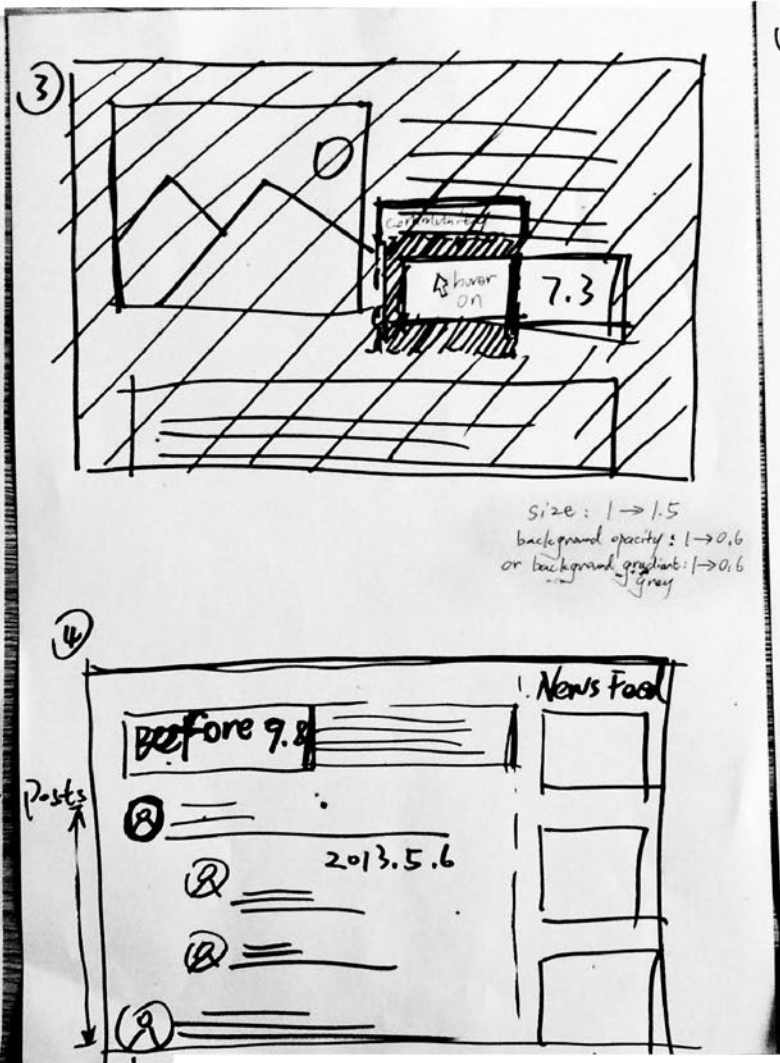 ③
community
hover
on
7.3
size: 1→1.5
background opacity: 1→0.6
or background gradient: 1→0.6
grey
④
News Feed
Before 9.8
Posts
2013.5.6